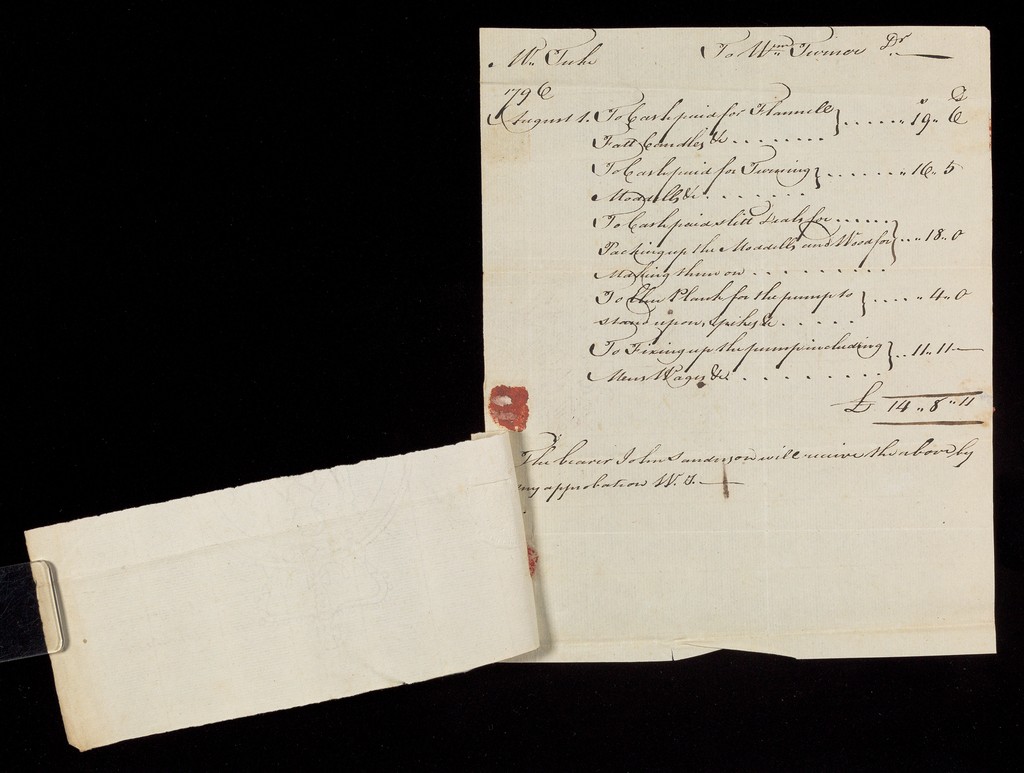 Wm Tuke To Wm Turner Dr
1796 s D
August 1. To Cash paid for Flannell } ...... " 19 " 6
Fatt Candles &c ........
To Cash paid for Turning } ...... " 16 " 5
Moddells &c .......
To Cash paid slitt Deals for ......
Packing up the Moddells and Wood for } ... " 18 " 0
Making them on ..........
To Elm Plank for the pump to } .... " 4 " 0
stand upon, spikes &c .....
To Fixing up the pump including } .. 11 " 11 —
Mens Wages &c .........
£ 14 " 8 " 11
The bearer John Sanderson will receive the above by
my approbation W. T. —